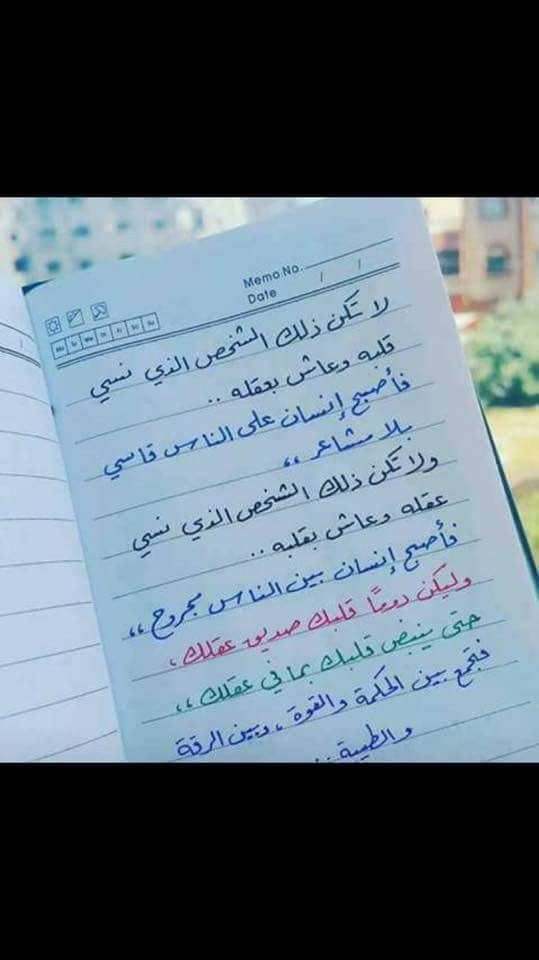 Memo No.
Date / /
Mo Tu We Th Fr Sa Su
لا تكن ذلك الشخص الذي نسي
قلبه وعاش بعقله ..
فأصبح إنسان على الناس قاسي
بلا مشاعر ،،
ولا تكن ذلك الشخص الذي نسي
عقله وعاش بقلبه ..
فأصبح إنسان بين الناس مجروح ،،
وليكن دومًا قلبك صديق عقلك ،
حتى ينبض قلبك بما في عقلك ،،
فتجمع بين الحكمة والقوة ، وبين الرقة
والطيبة ..